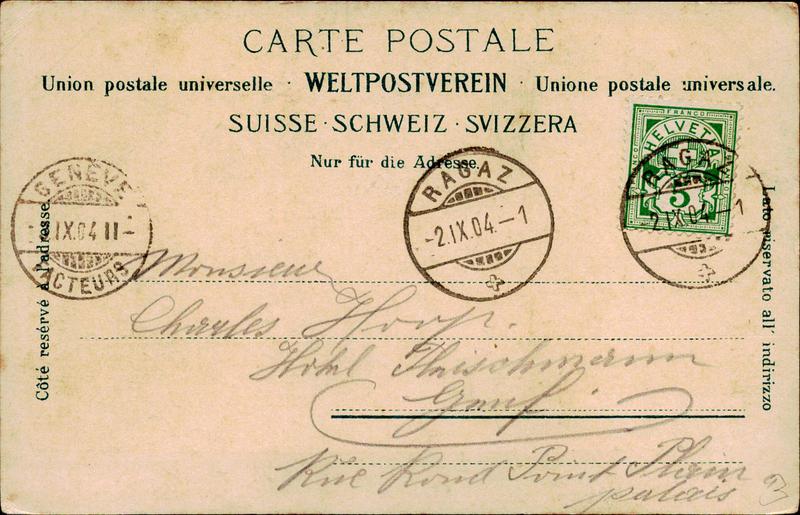 CARTE POSTALE
Union postale universelle · WELTPOSTVEREIN · Unione postale universale.
SUISSE · SCHWEIZ · SVIZZERA
Nur für die Adresse.
FRANCO
HELVETIA
5
RAGAZ
2.IX.04.-1
RAGAZ
-2.IX.04.-1
GENÈVE
IX.04 II-
FACTEURS
Côté resérvé à l'adresse.
Lato riservato all' indirizzo
Monsieur
Charles Hoop.
Hôtel Fleischmann
Genf.
Rue Rond Point Plain
palais